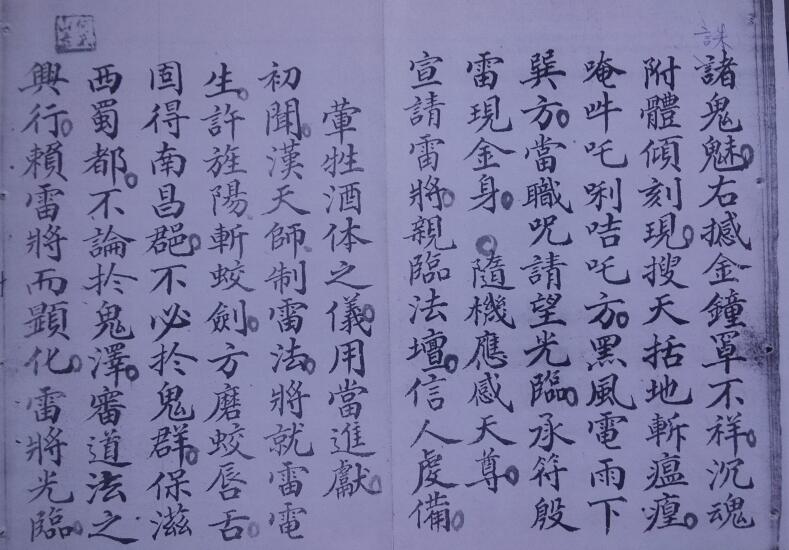 誅
諸鬼魅。右撼金鐘罩不祥。沉魂
附體傾刻現。搜天括地斬瘟㾮。
唵吽吒唎咭吒方。黑風雷雨下
巽方。當職咒請望光臨。承符殷
雷現金身。隨機應感天尊。
宣請雷將。親臨法壇。信人虔備。
葷牲酒体之儀。用當進獻。
初聞。漢天師制雷法。將就雷電
生。許旌陽斬蛟劍。方磨蛟唇舌。
固得南昌郡。不必扵鬼群。保滋
西蜀都。不論扵鬼澤。審道法之
興行。賴雷將而顕化。雷將光臨。